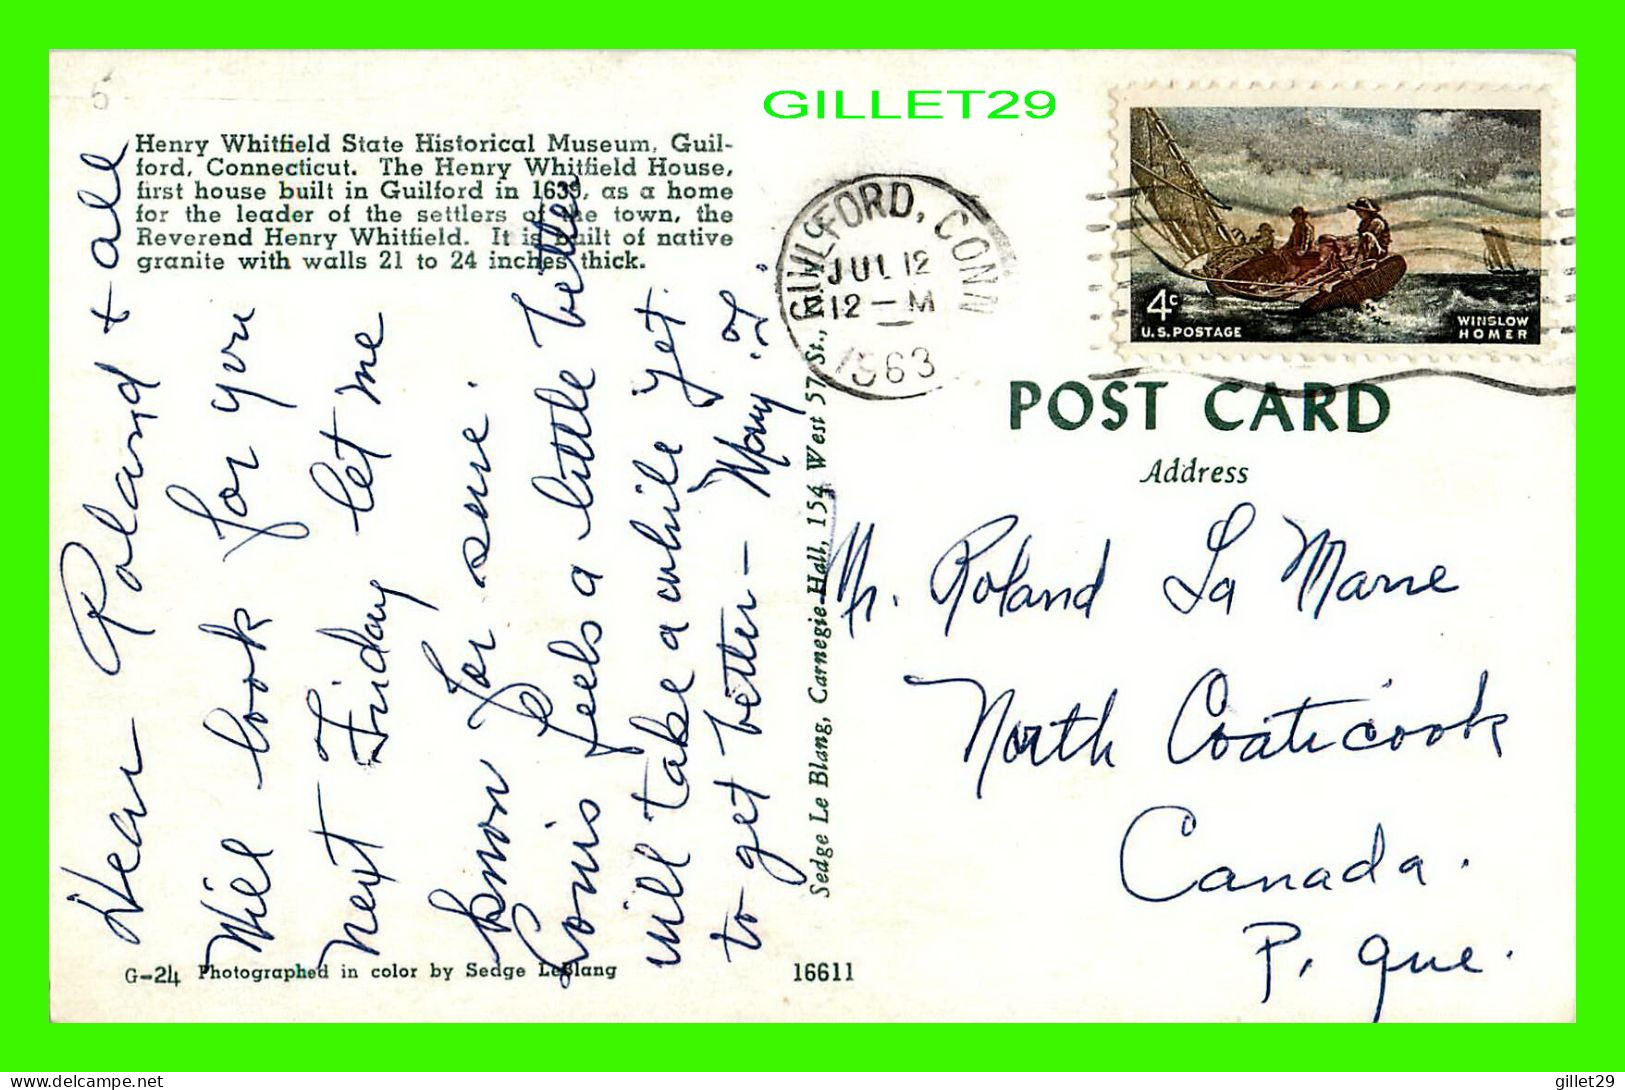 GILLET29
5
Henry Whitfield State Historical Museum, Guil-
ford, Connecticut. The Henry Whitfield House,
first house built in Guilford in 1639, as a home
for the leader of the settlers of the town, the
Reverend Henry Whitfield. It is built of native
granite with walls 21 to 24 inches thick.
Dear Roland + all
Will look for you
next Friday let me
know for sure.
Louis feels a little better
will take a while yet.
to get better - Mary
G-24 Photographed in color by Sedge LeBlang
16611
Sedge Le Blang, Carnegie Hall, 154 West 57 St.,
GUILFORD, CONN
JUL 12
12-M
1963
4c
U.S. POSTAGE
WINSLOW
HOMER
POST CARD
Address
Mr. Roland La Marre
North Coaticook
Canada.
P. Que.
gillet29